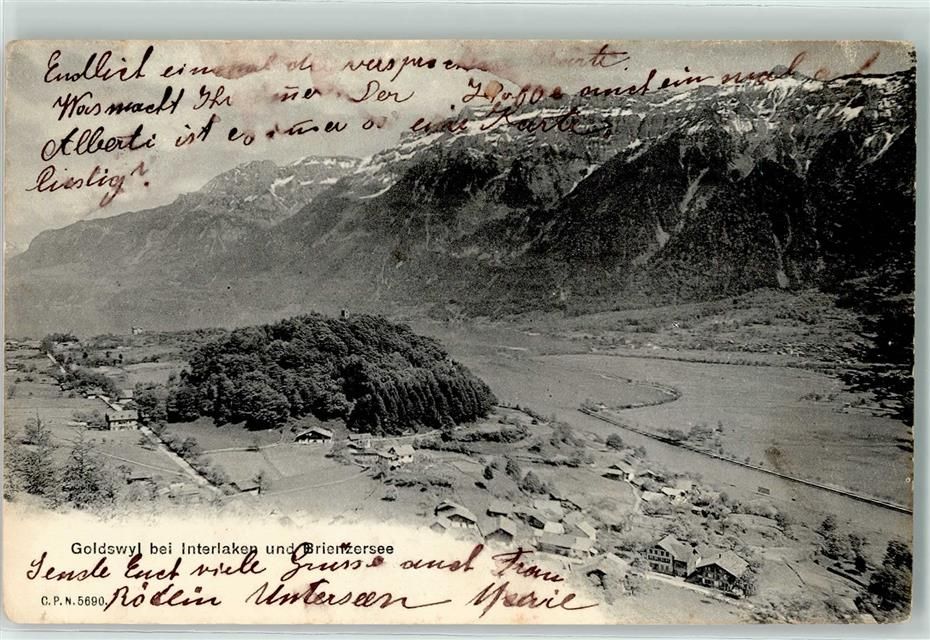 Endlich einmal die versprochene Karte.
Was macht Ihr immer. Der und ein mal
Alberti ist es immer so eine Karte
Rieslig?
Goldswyl bei Interlaken und Brienzersee
Sende Euch viele Grüsse auch Frau
C. P. N. 5690.
Rödlin Unterseen Marie